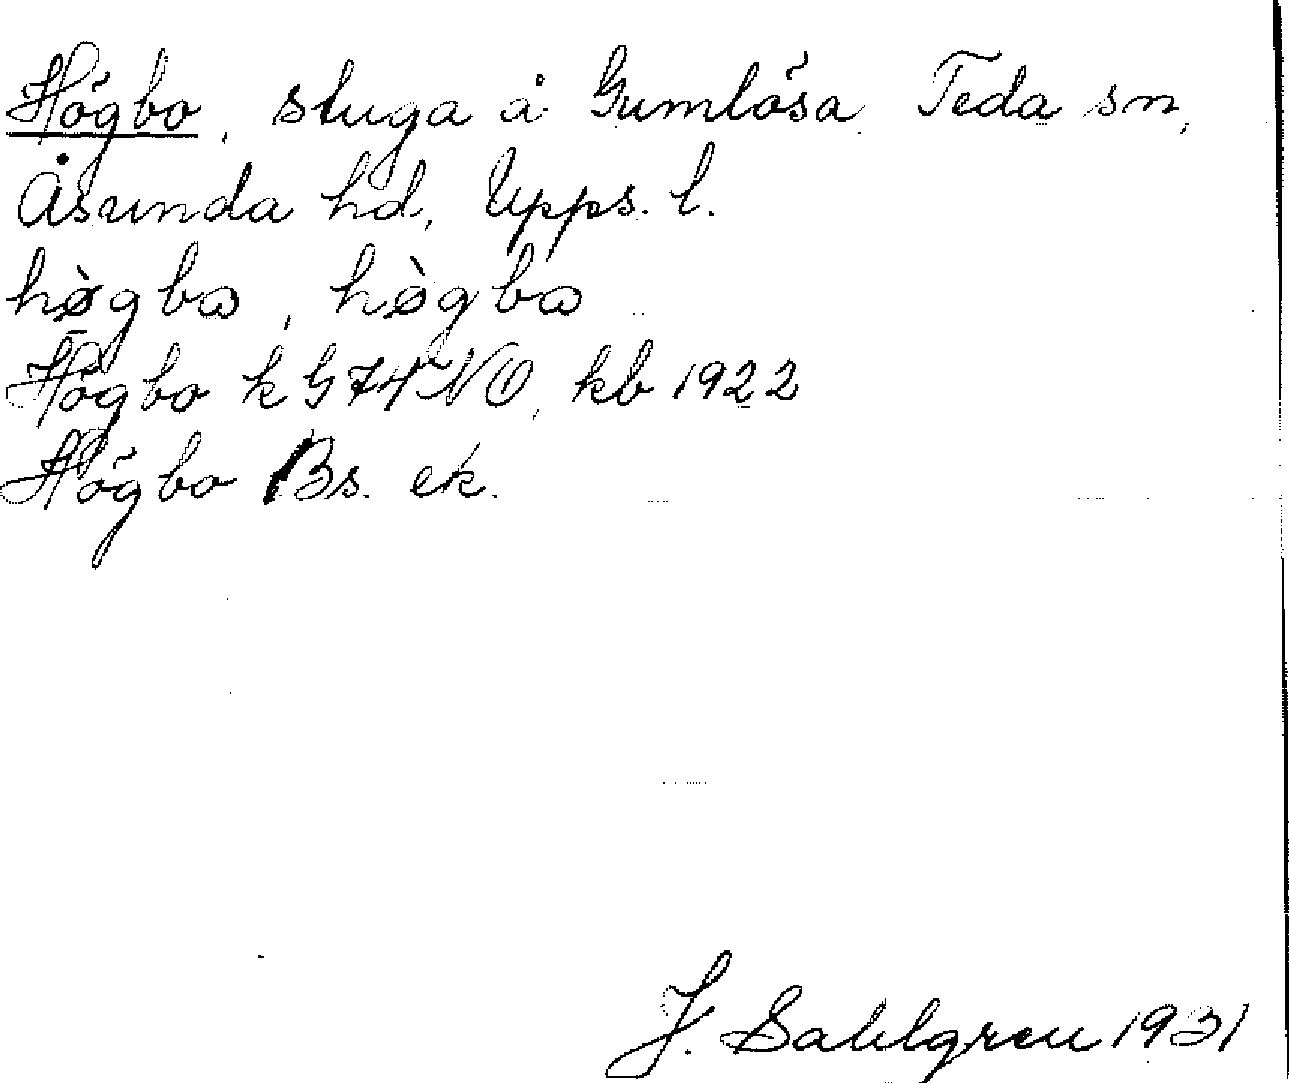 Högbo, stuga å Gumlösa, Teda sn,
Åsunda hd, Upps. l.
hø̀gbɷ, hø̀gbɷ
Högbo k G 74 NO, kb 1922
Högbo Bs. ek.
J. Sahlgren 1931